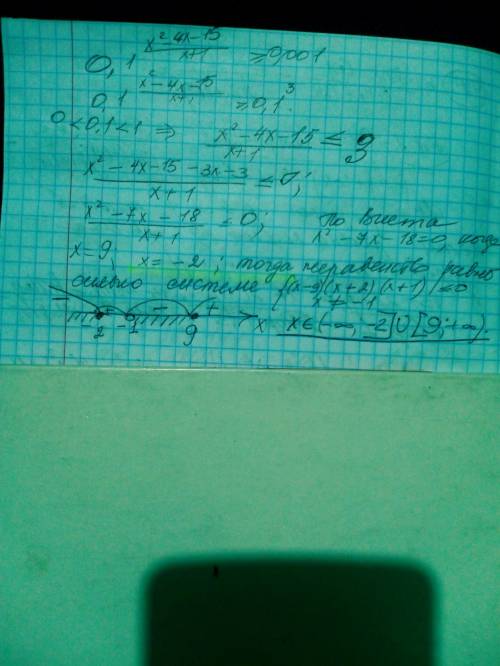 0,1^((x²-4x-15)/(x+1)) ≥ 0,001
0,1^((x²-4x-15)/(x+1)) ≥ 0,1³
0<0,1<1 ⇒ (x²-4x-15)/(x+1) ≤ 3
(x²-4x-15-3x-3)/(x+1) ≤ 0;
(x²-7x-18)/(x+1) ≤ 0; по Виета
x²-7x-18=0, когда
x=9; x=-2; тогда неравенство равно
сильно системе {(x-9)(x+2)(x+1)≤0
x≠-1
- + - +
2 -1 9 x x∈(-∞,-2]∪[9;+∞).